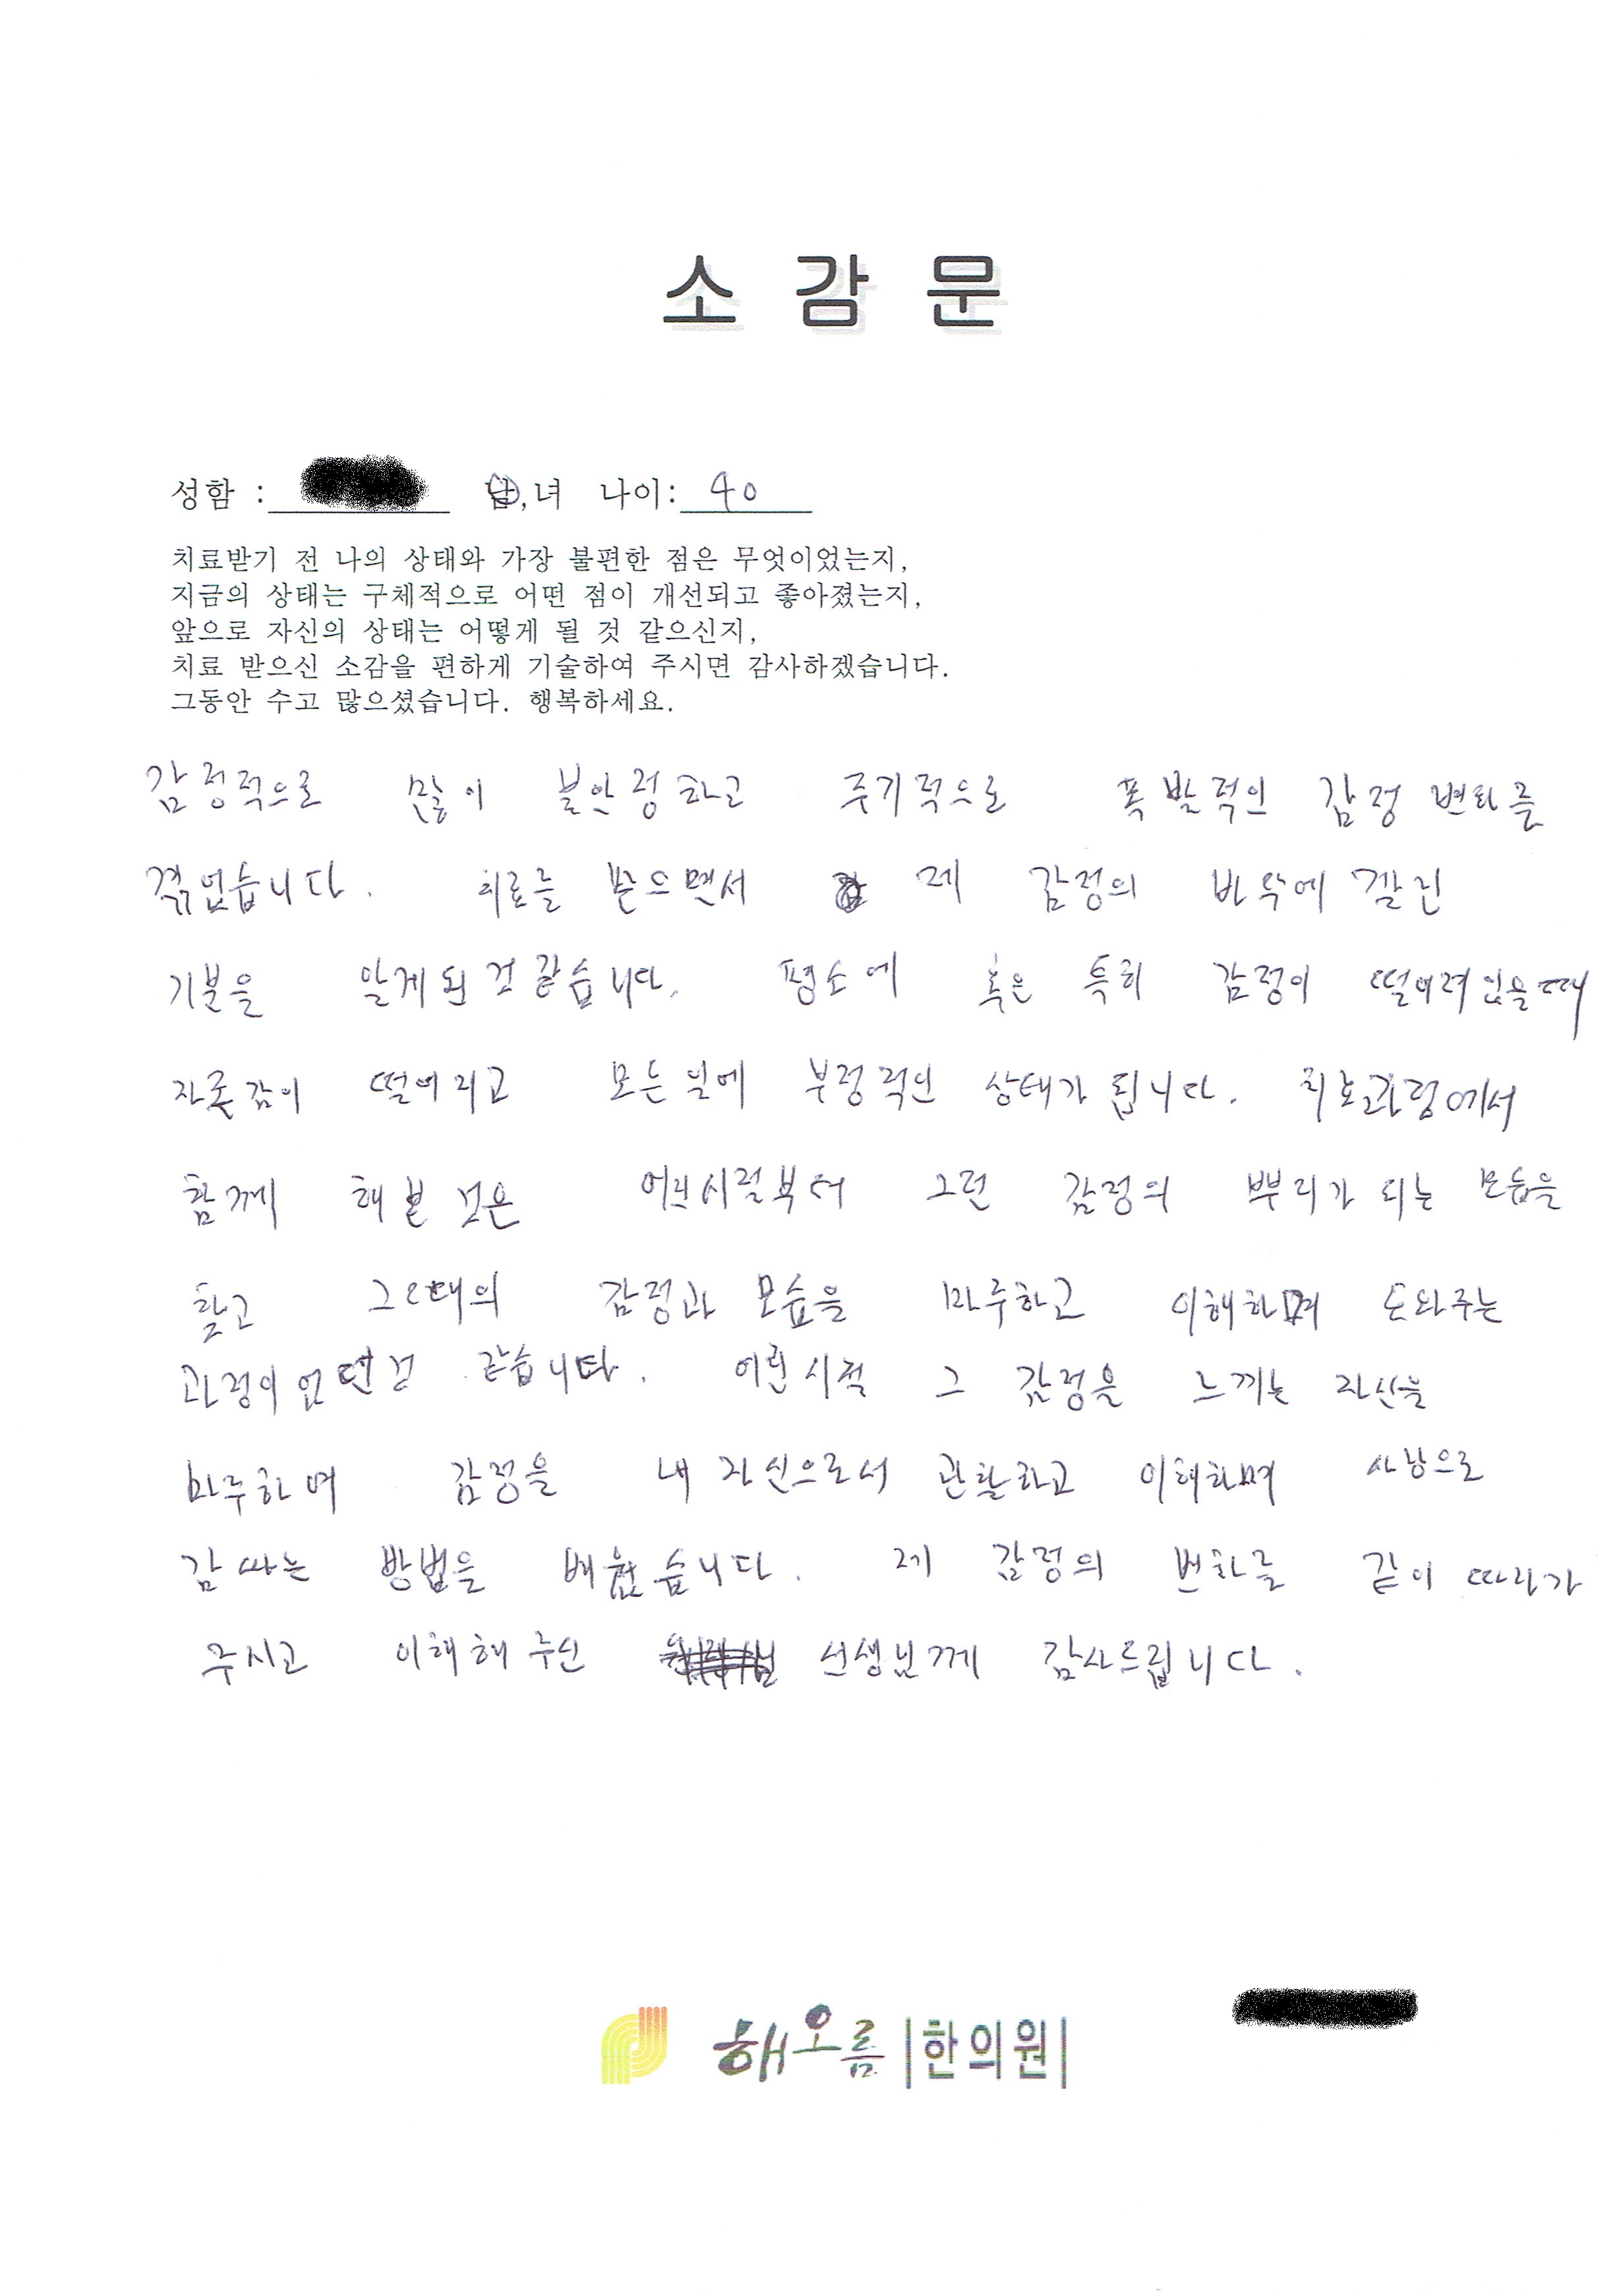 소 감 문
성함 : 남,녀 나이: 40
치료받기 전 나의 상태와 가장 불편한 점은 무엇이었는지,
지금의 상태는 구체적으로 어떤 점이 개선되고 좋아졌는지,
앞으로 자신의 상태는 어떻게 될 것 같으신지,
치료 받으신 소감을 편하게 기술하여 주시면 감사하겠습니다.
그동안 수고 많으셨습니다. 행복하세요.
감정적으로 많이 불안정하고 주기적으로 폭발적인 감정 변화를
겪었습니다. 치료를 받으면서 제 감정의 바닥에 깔린
기분을 알게된 것 같습니다. 평소에 혹은 특히 감정이 떨어져있을때
자존감이 떨어지고 모든일에 부정적인 상태가 됩니다. 치료과정에서
함께 해본 것은 어린시절부터 그런 감정의 뿌리가 되는 모습을
찾고 그때의 감정과 모습을 마주하고 이해하며 도와주는
과정이었던것 같습니다. 어린시절 그 감정을 느끼는 자신을
마주하며 감정을 내 자신으로서 관찰하고 이해하며 사랑으로
감싸는 방법을 배웠습니다. 제 감정의 변화를 같이 따라가
주시고 이해해주신 선생님께 감사드립니다.
해오름 |한의원|